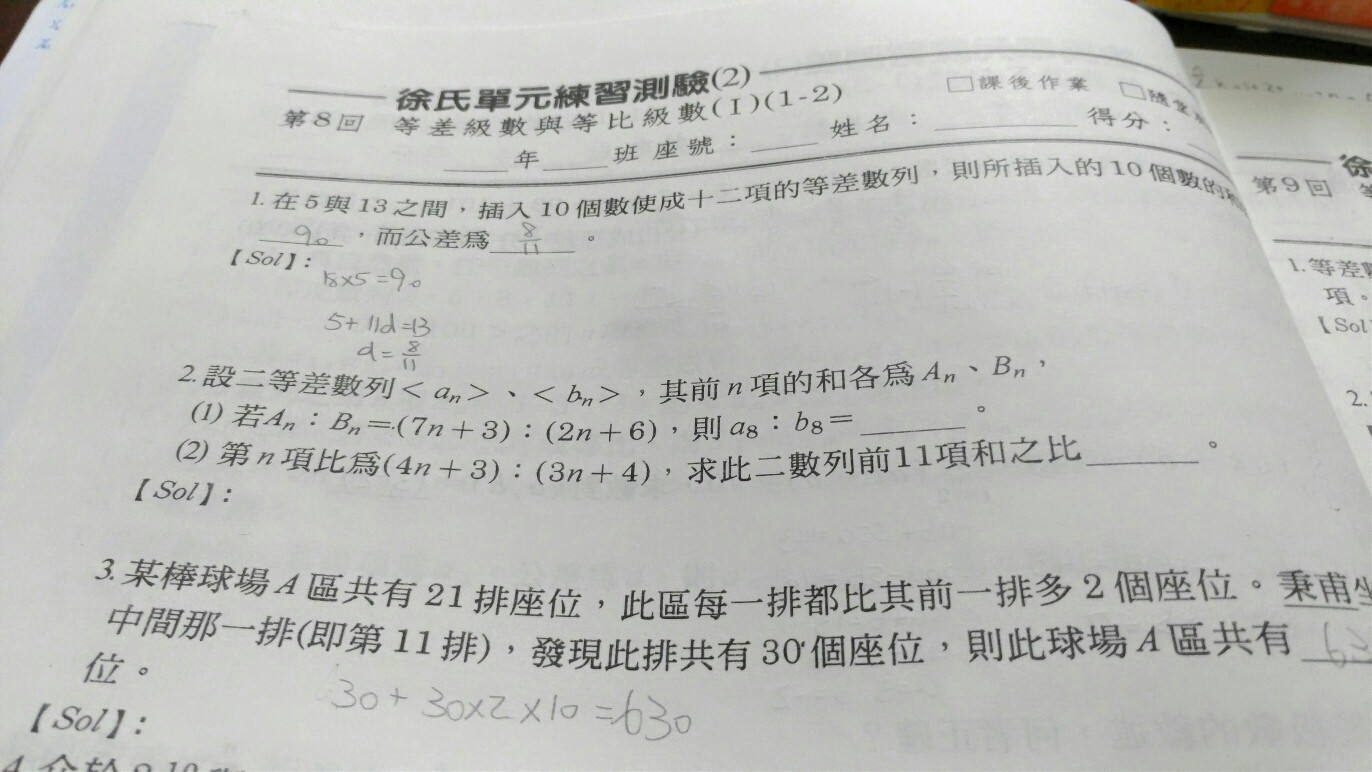 徐氏單元練習測驗(2)
第8回 等差級數與等比級數(I)(1-2)
□課後作業 □隨堂
年 班 座號： 姓名： 得分：
1.在5與13之間，插入10個數使成十二項的等差數列，則所插入的10個數的
90，而公差為8/11。
【Sol】:
18×5=90
5+11d=13
d=8/11
2.設二等差數列<aₙ>、<bₙ>，其前n項的和各為Aₙ、Bₙ，
(1) 若Aₙ：Bₙ=(7n+3)：(2n+6)，則a₈：b₈=______。
(2) 第n項比為(4n+3)：(3n+4)，求此二數列前11項和之比______。
【Sol】:
3.某棒球場A區共有21排座位，此區每一排都比其前一排多2個座位。秉甫坐
中間那一排(即第11排)，發現此排共有30個座位，則此球場A區共有 63
位。
【Sol】:
30+30×2×10=630
徐
第9回
1.等差
項。
【Sol
2.